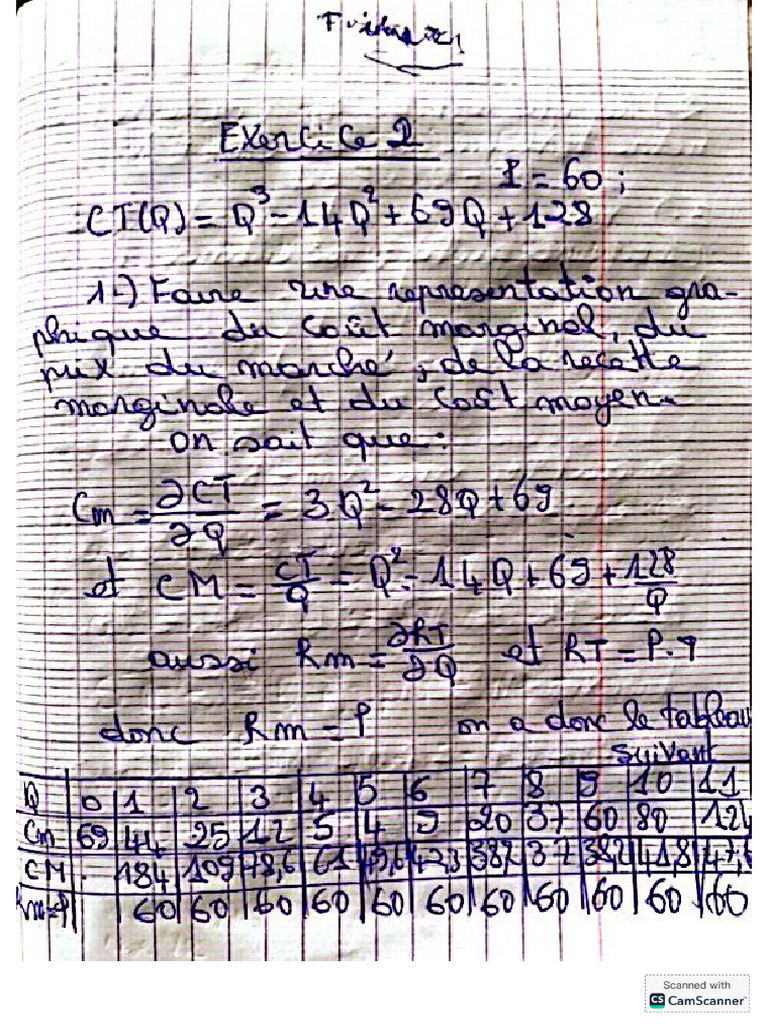 Exercice 2
P = 60 ;
CT(Q) = Q³ - 14Q² + 69Q + 128
1-) Faire une représentation gra-
phique du coût marginal, du
prix du marché, de la recette
marginale et du coût moyen.
on sait que :
Cm = ∂CT/∂Q = 3Q² - 28Q + 69
et CM = CT/Q = Q² - 14Q + 69 + 128/Q
aussi Rm = ∂RT/∂Q et RT = P.q
donc Rm = P on a donc le tableau
suivant
Q 0 1 2 3 4 5 6 7 8 9 10 11
Cm 69 44 25 12 5 4 9 20 37 60 80 124
CM . 184 109 78,6 61 49,6 42,3 38,2 37 38,2 41,8 47,6
Rm=P 60 60 60 60 60 60 60 60 60 60 60
Scanned with
CS CamScanner